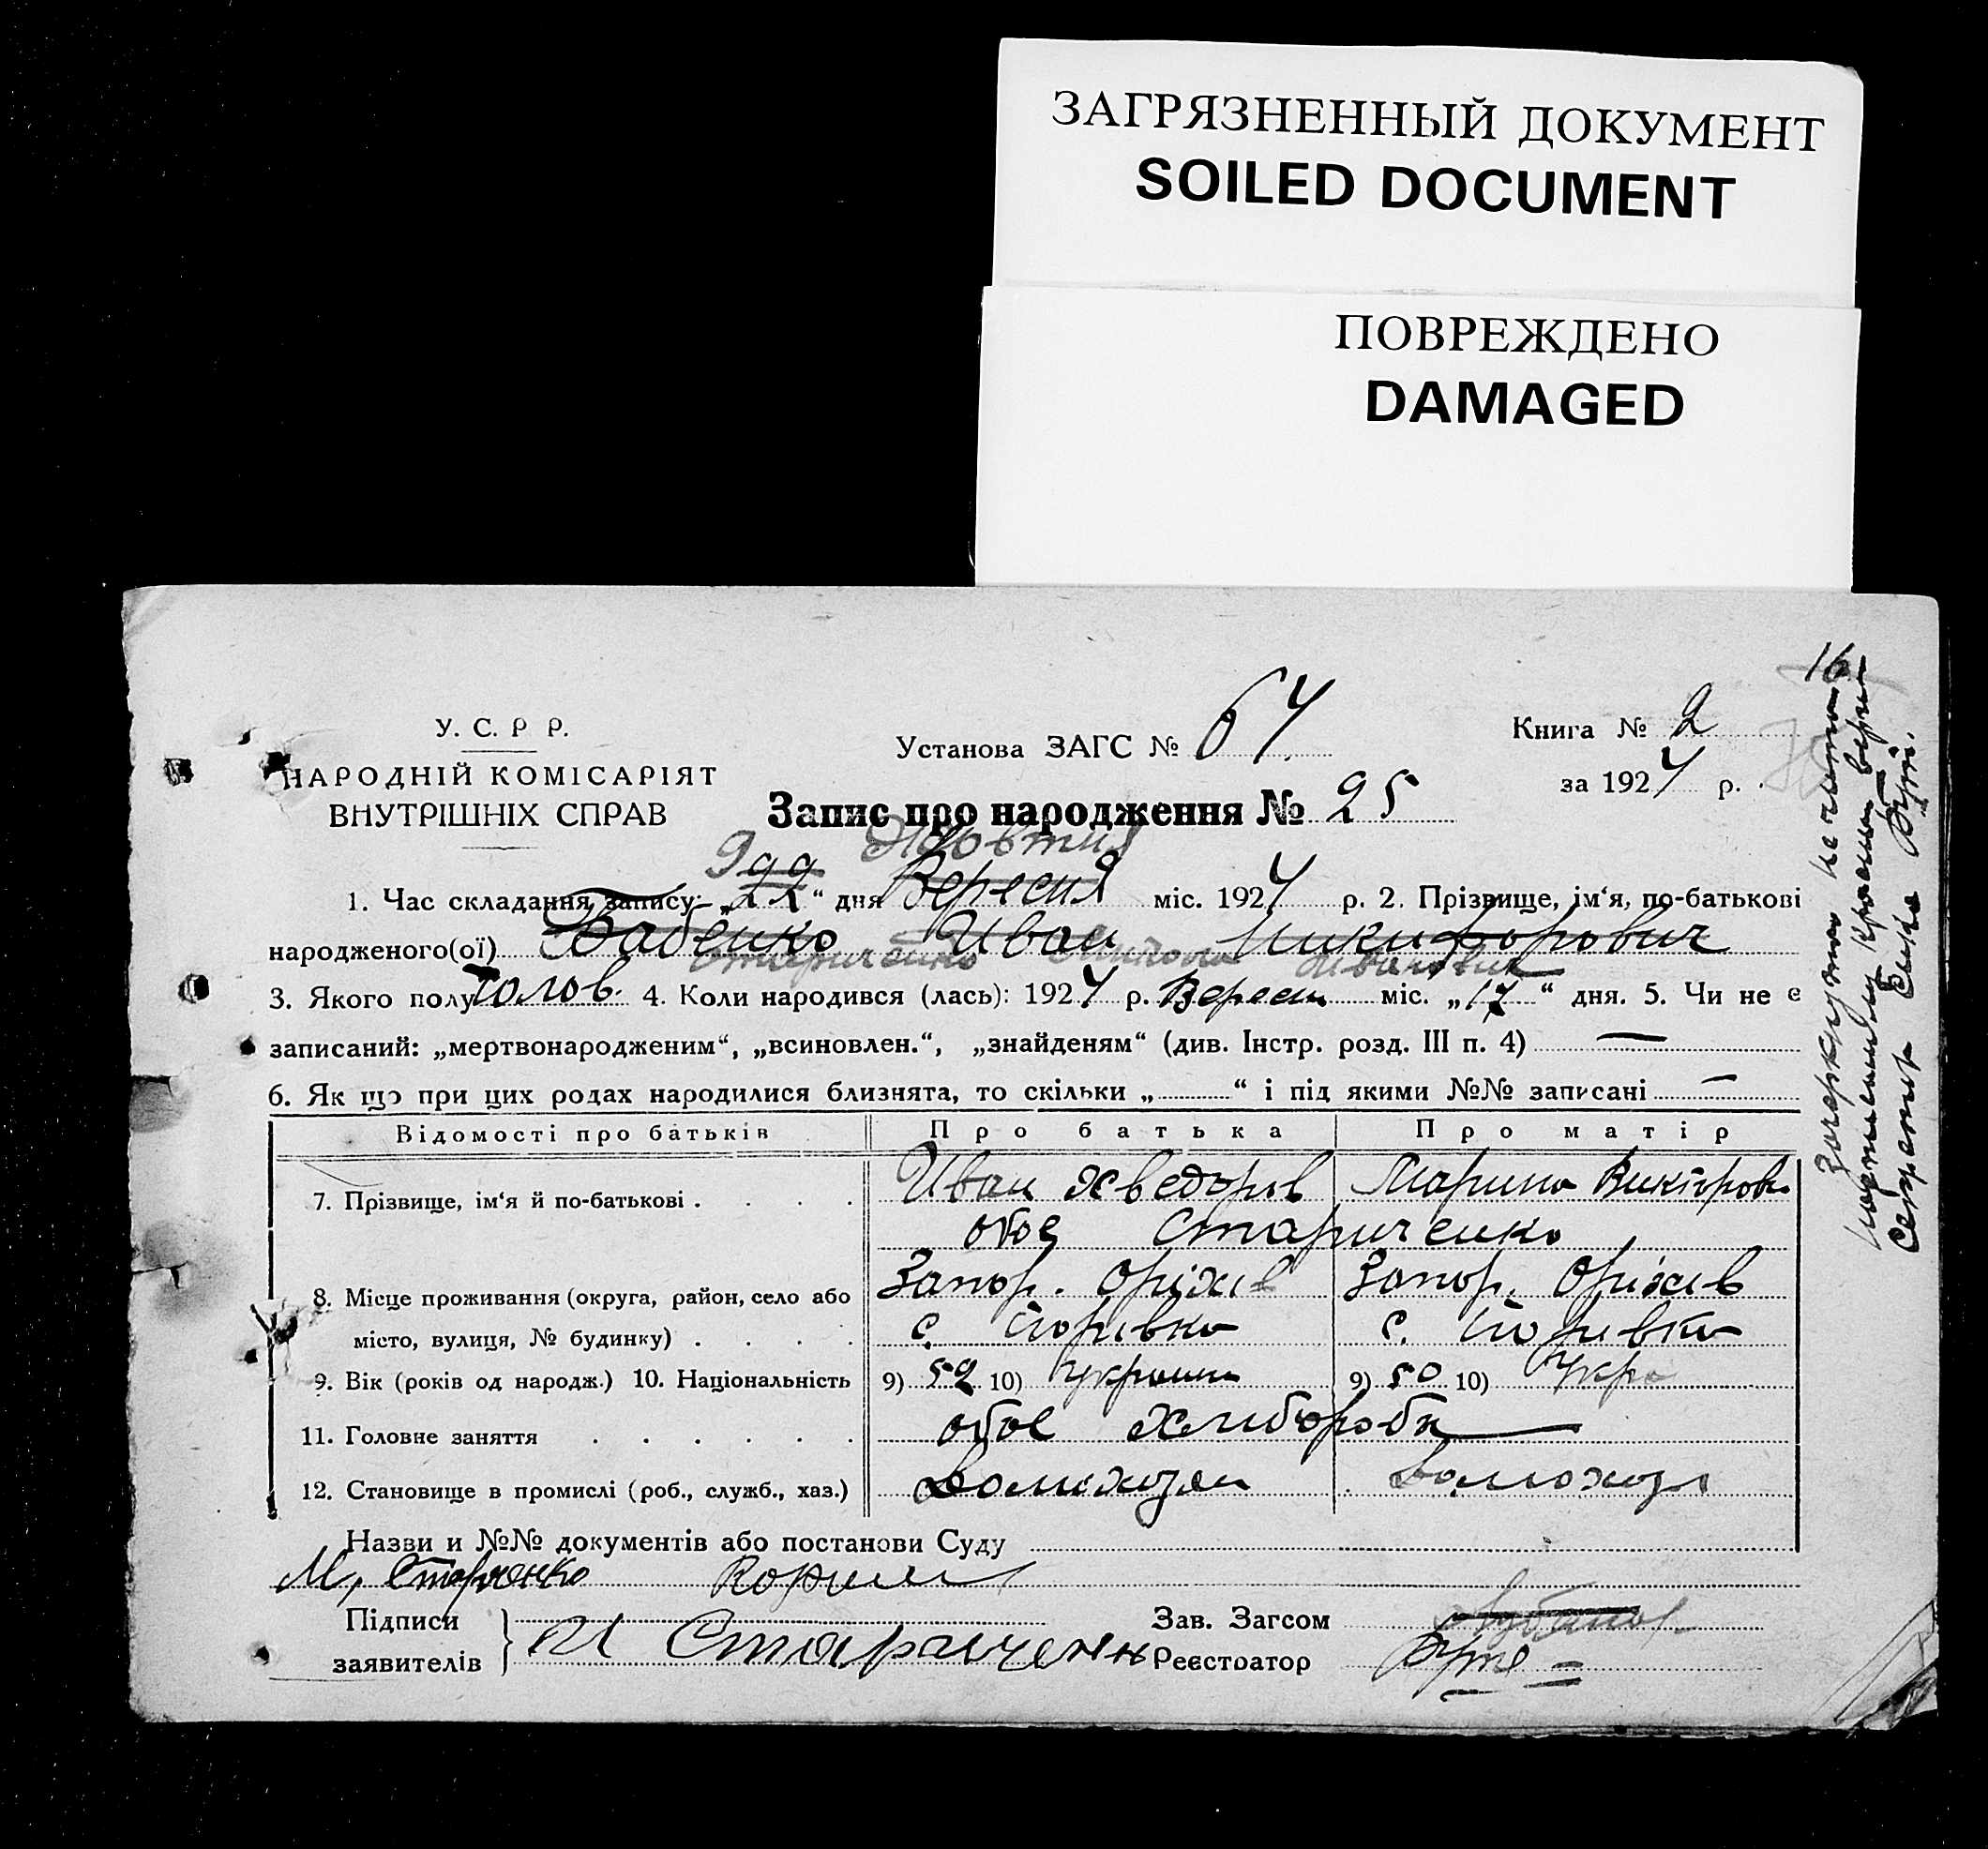 ЗАГРЯЗНЕННЫЙ ДОКУМЕНТ
SOILED DOCUMENT
ПОВРЕЖДЕНО
DAMAGED
16
У. С. Р Р.
НАРОДНІЙ КОМІСАРІЯТ
ВНУТРІШНІХ СПРАВ
Установа ЗАГС № 64
Книга № 2
за 1924 р.
Запис про народження № 25
9 Жовтня
1. Час складання запису: „22“ дня Вересня міс. 1924 р. 2. Прізвище, ім‘я, по-батькові
народженого(ої) Бабенко Иван Никифорович
Стариченко Иванович
3. Якого полу Голов. 4. Коли народився (лась): 1924 р. Вересн міс. „17“ дня. 5. Чи не є
записаний: „мертвонародженим“, „всиновлен.“, „знайденям“ (див. Інстр. розд. III п. 4) —
6. Як що при цих родах народилися близнята, то скільки „ “ і під якими №№ записані —
Відомості про батьків Про батька Про матір
7. Прізвище, ім‘я й по-батькові . . . . Иван Хведоров Марина Викторов
обоє Стариченко
8. Місце проживання (округа, район, село або Запор. Оріхів Запор. Оріхів
місто, вулиця, № будинку) . . . . с. с.
9. Вік (років од народж.) 10. Національність 9) 52 10) Украин 9) 50 10) Укра
11. Головне заняття . . . . . . обоє хлибороби
12. Становище в промислі (роб., служб., хаз.) Домохозяи Домохозя
Назви и №№ документів або постанови Суду
М. Старченко
Підписи
заявителів И Стариченк
Зав. Загсом
Реєстратор